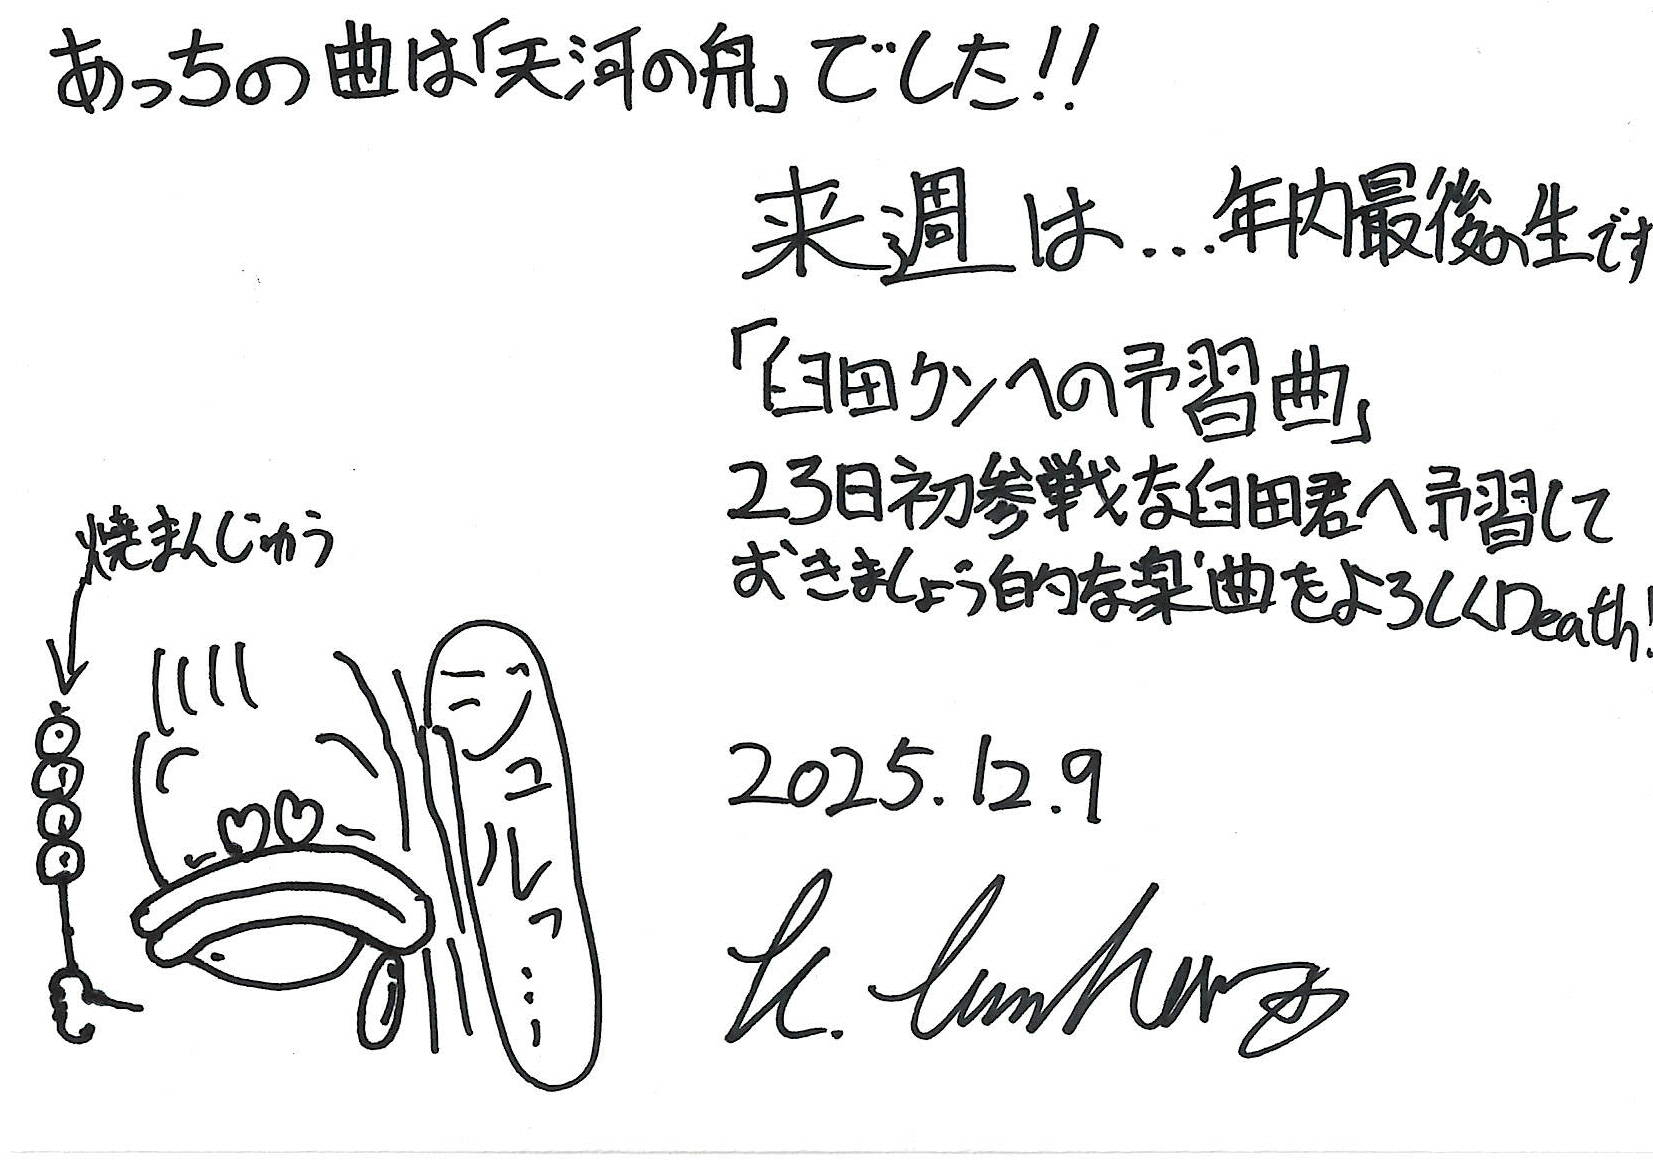 あっちの曲は「天河の舟」でした!!
来週は...年内最後の生です
「臼田クンへの予習曲」
23日初参戦な臼田君へ予習して
おきましょう的な楽曲をよろしくDeath!
焼まんじゅう
ジュルッ…
2025.12.9